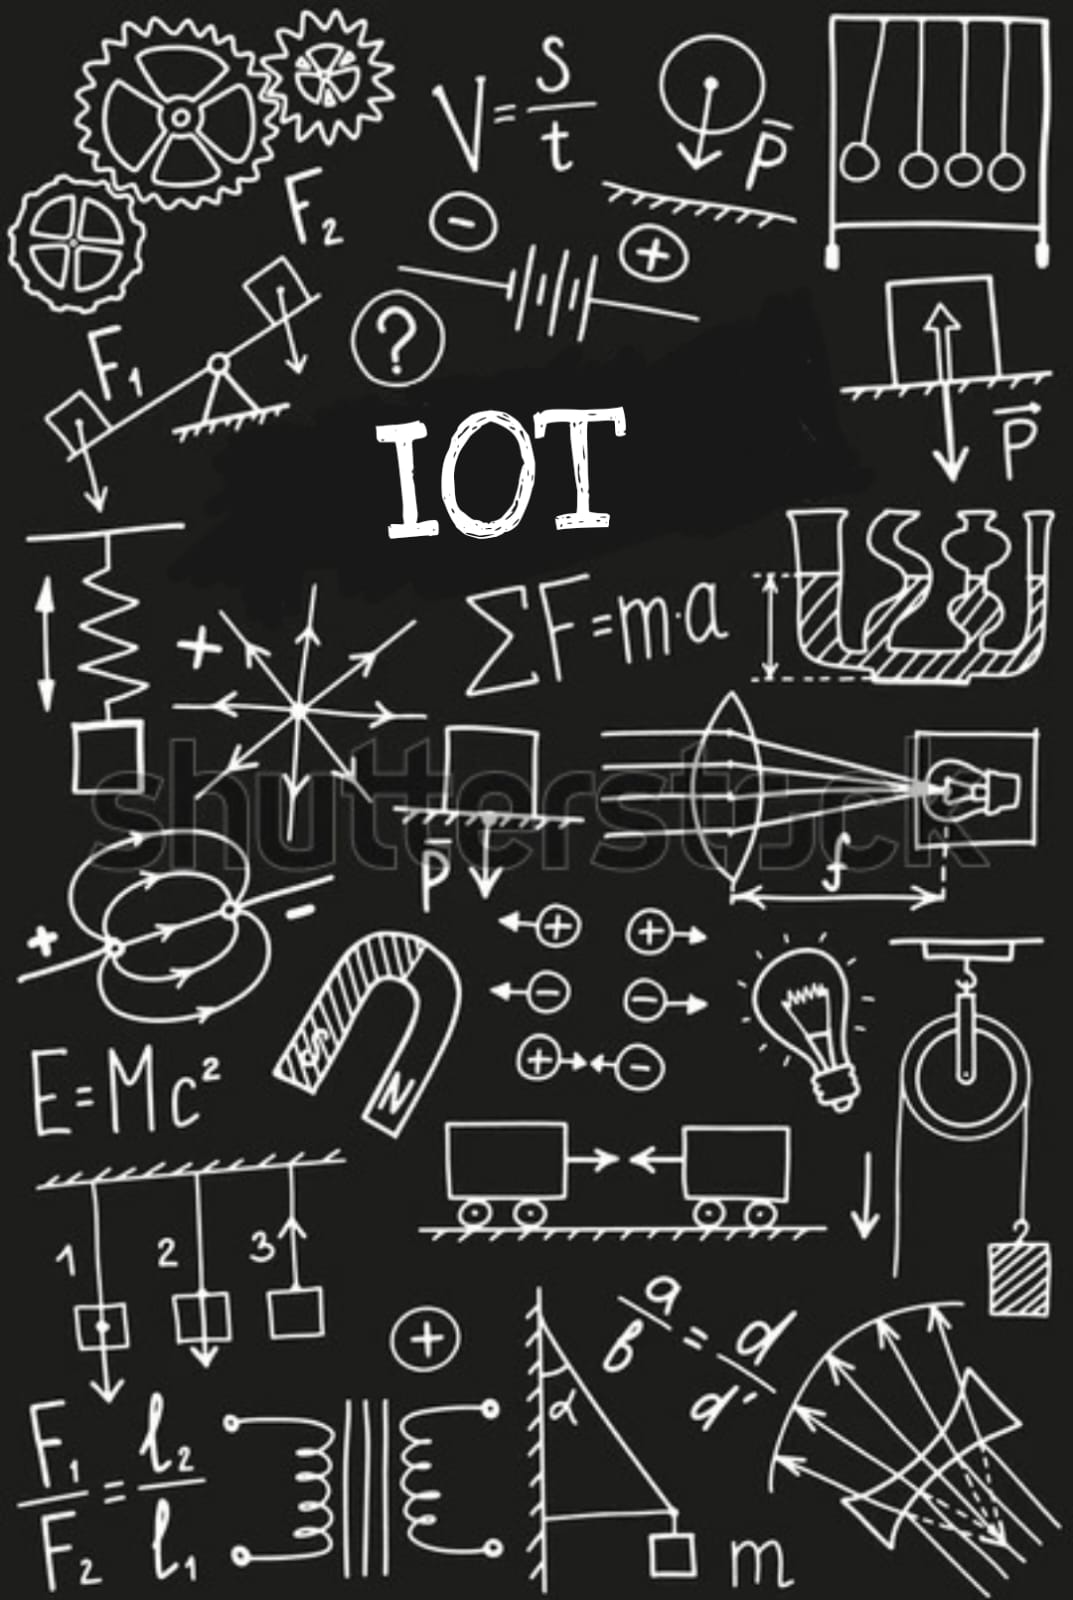 V = s/t
P̄
F₂
−
+
?
F₁
P⃗
IOT
ΣF=m·a
+
shutterstock
f
P̄
+ −
+ +
− −
+ −
E=Mc²
S
N
1 2 3
+
a/b = d/d'
α
F₁/F₂ = l₂/l₁
m